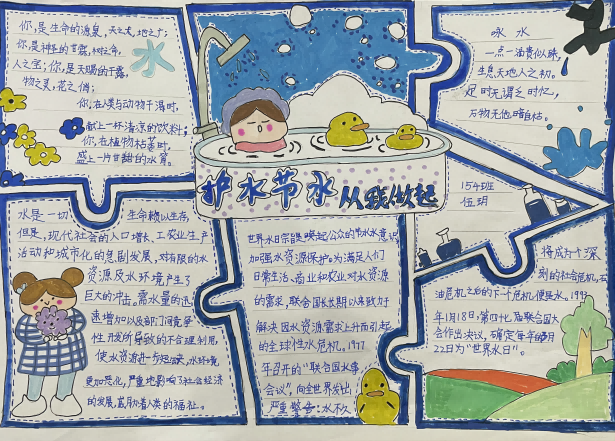 你,是生命的源泉,天之灵,地之广;
你,是神圣的甘露,树之命,
人之宝;你,是天赐的干露,
物之灵,花之俏;
你,在人类与动物干渴时,
献上一杯清凉的饮料;
你,在植物枯萎时,
盛上一片甘甜的水育。
水
咏 水
一点一滴贵似珠,
生息天地人之初。
足时无谓乏时忆,
万物无他暗自枯。
护水节水从我做起
1594班
伍玥
水是一切 生命赖以生存,
但是,现代社会的人口增长、工农业生产
活动和城市化的急剧发展,对有限的水
资源及水环境产生了
巨大的冲击。需水量的迅
速增加以及部门间竞争
性开发所导致的不合理利用,
使水资源进一步短缺,水环境
更加恶化,严重地影响了社会经济
的发展,威胁着人类的福祉。
世界水日宗旨是唤起公众的节水意识,
加强水资源保护。为满足人们
日常生活、商业和农业对水资源
的需求,联合国长期以来致力于
解决因水资源需求上升而引起
的全球性水危机。1977
年召开的“联合国水事
会议”,向全世界发出
严重警告:水不久
将成为一个深
刻的社会危机,石
油危机之后的下一个危机便是水。1993
年1月18日,第四十七届联合国大
会作出决议,确定每年的3月
22日为“世界水日”。